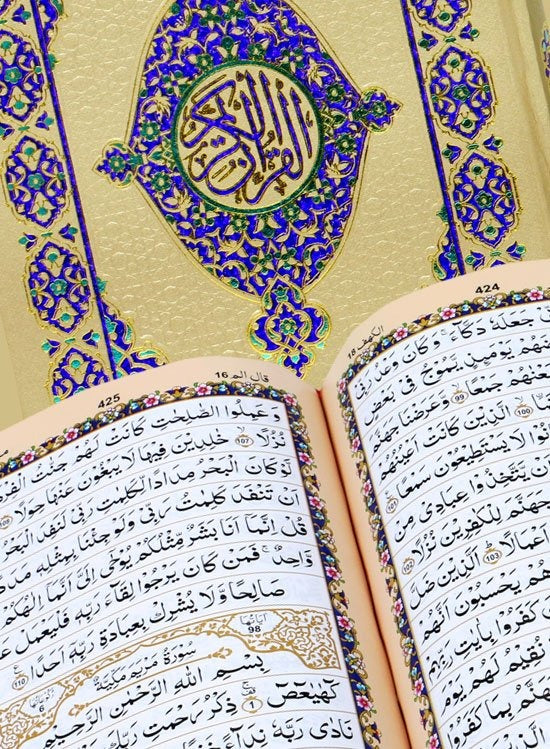 القرآن الكريم
424
الكهف 18
جَعَلَهٗ دَكَّآءَ ۚ وَكَانَ وَعْدُ
يَوْمَئِذٍ يَّمُوْجُ فِيْ بَعْضٍ
جَمْعًا ﴿99﴾ وَّعَرَضْنَا جَهَنَّمَ
﴿100﴾ الَّذِيْنَ كَانَتْ اَعْيُنُهُمْ
لَا يَسْتَطِيْعُوْنَ سَمْعًا ﴿101﴾
اَنْ يَّتَّخِذُوْا عِبَادِيْ مِنْ
جَهَنَّمَ لِلْكٰفِرِيْنَ نُزُلًا
اَعْمَالًا ﴿103﴾ اَلَّذِيْنَ ضَلَّ
يَحْسَبُوْنَ اَنَّهُمْ
كَفَرُوْا بِاٰيٰتِ رَبِّهِمْ
نُقِيْمُ لَهُمْ يَوْمَ
جَهَنَّمُ بِمَا كَفَرُوْا
425
قال الم 16
وَعَمِلُوا الصّٰلِحٰتِ كَانَتْ لَهُمْ جَنّٰتُ
نُزُلًا ﴿107﴾ خٰلِدِيْنَ فِيْهَا لَا يَبْغُوْنَ عَنْهَا حِوَلًا ﴿108﴾
لَّوْ كَانَ الْبَحْرُ مِدَادًا لِّكَلِمٰتِ رَبِّيْ لَنَفِدَ الْبَحْرُ
اَنْ تَنْفَدَ كَلِمٰتُ رَبِّيْ وَلَوْ جِئْنَا بِمِثْلِهٖ مَدَدًا
قُلْ اِنَّمَآ اَنَا بَشَرٌ مِّثْلُكُمْ يُوْحٰٓى اِلَيَّ اَنَّمَآ اِلٰهُكُمْ
وَّاحِدٌ ۚ فَمَنْ كَانَ يَرْجُوْا لِقَآءَ رَبِّهٖ فَلْيَعْمَلْ
صَالِحًا وَّلَا يُشْرِكْ بِعِبَادَةِ رَبِّهٖٓ اَحَدًا ﴿110﴾
اٰيَاتُهَا 98
سُوْرَةُ مَرْيَمَ مَكِّيَّةٌ
6
بِسْمِ اللّٰهِ الرَّحْمٰنِ الرَّحِيْمِ
كٓهٰيٰعٓصٓ ﴿1﴾ ذِكْرُ رَحْمَتِ رَبِّكَ
نَادٰى رَبَّهٗ نِدَآءً